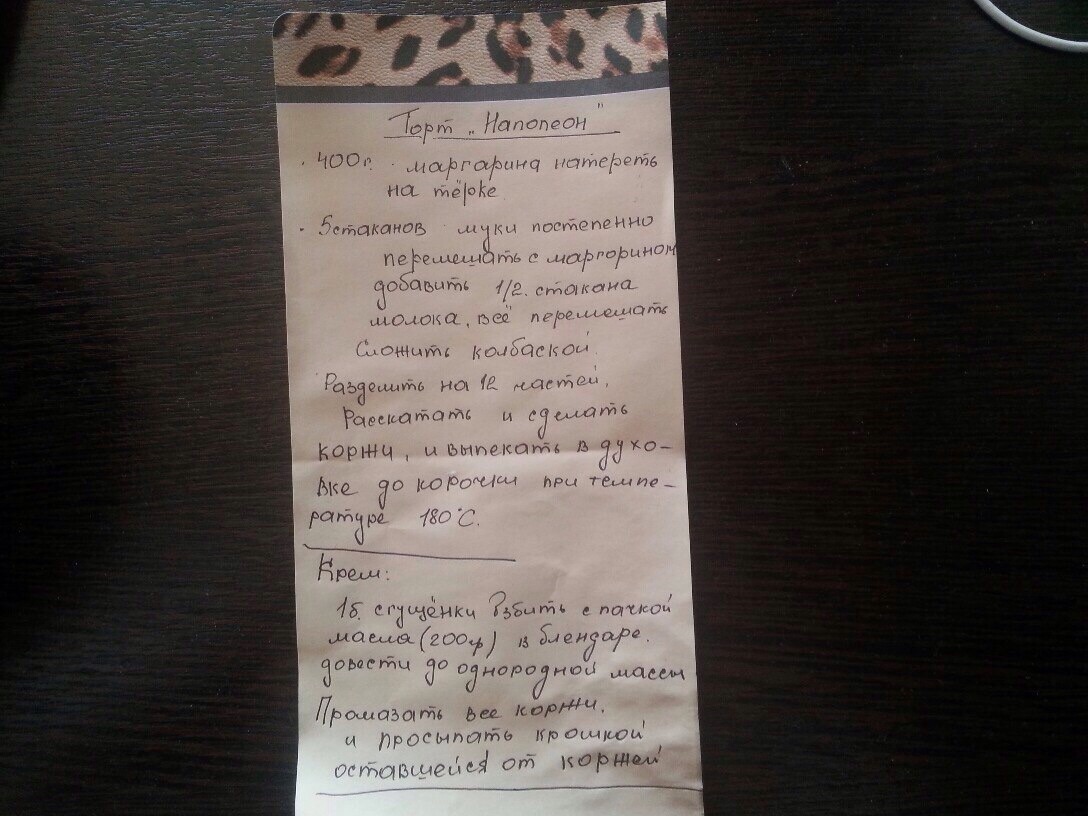 Торт „Наполеон"
· 400г. маргарина натереть
на тёрке.
· 5стаканов муки постепенно
перемешать с маргорином
добавить 1/2. стакана
молока, всё перемешать
Сложить колбаской.
Разделить на 12 частей,
Расскатать и сделать
коржи, и выпекать в духо-
вке до корочки при темпе-
ратуре 180°С.
Крем:
1б. сгущёнки взбить с пачкой
масла (200гр) в блендаре.
довести до однородной массы
Промазать все коржи.
и просыпать крошкой
оставшейся от коржей